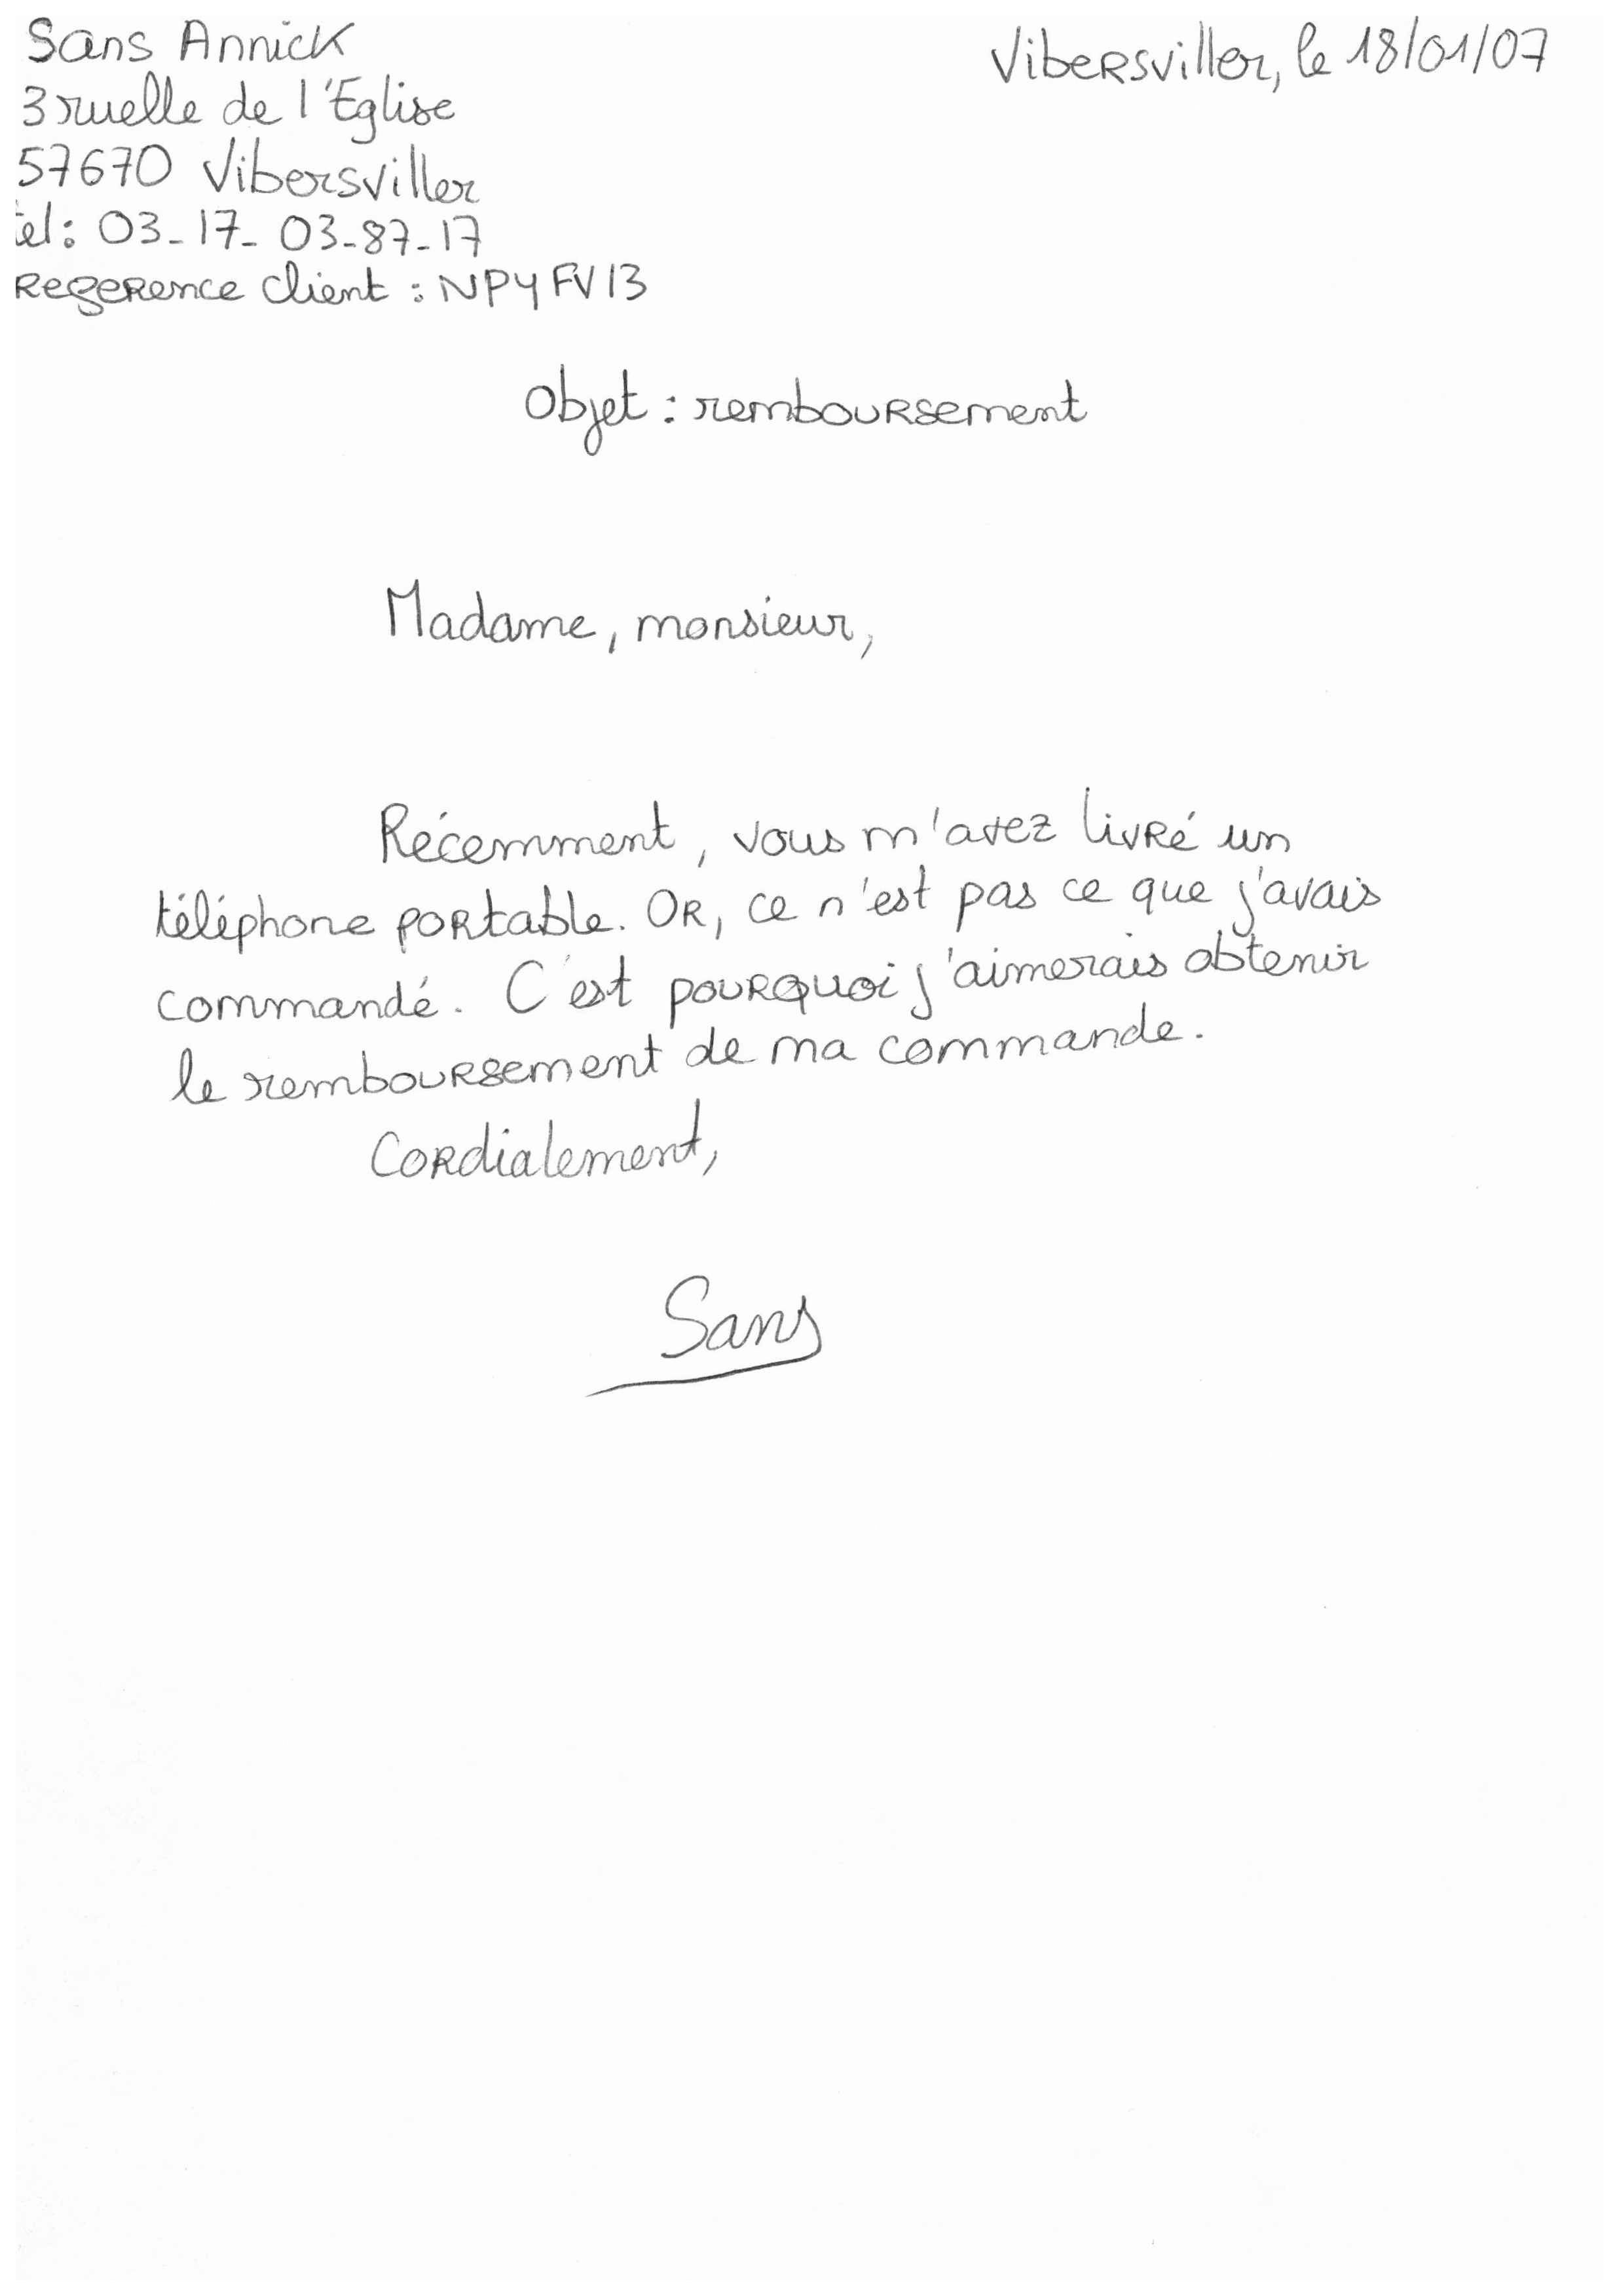 Sans Annick
Vibersviller, le 18/01/07
3 ruelle de l'Eglise
57670 Vibersviller
tel: 03-17-03-87-17
Reference client : NPYFV13
Objet : remboursement
Madame, monsieur,
Récemment, vous m'avez livré un
téléphone portable. Or, ce n'est pas ce que j'avais
commandé. C'est pourquoi j'aimerais obtenir
le remboursement de ma commande.
Cordialement,
Sans